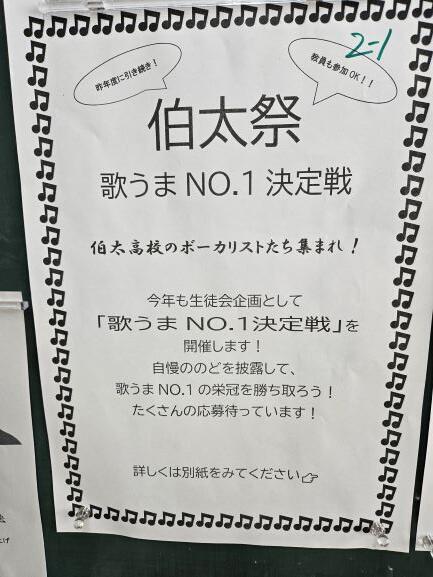 2-1
昨年度に引き続き！
教員も参加OK！！
伯太祭
歌うまNO.1決定戦
伯太高校のボーカリストたち集まれ！
今年も生徒会企画として
「歌うまNO.1決定戦」を
開催します！
自慢ののどを披露して、
歌うまNO.1の栄冠を勝ち取ろう！
たくさんの応募待っています！
詳しくは別紙をみてください☞